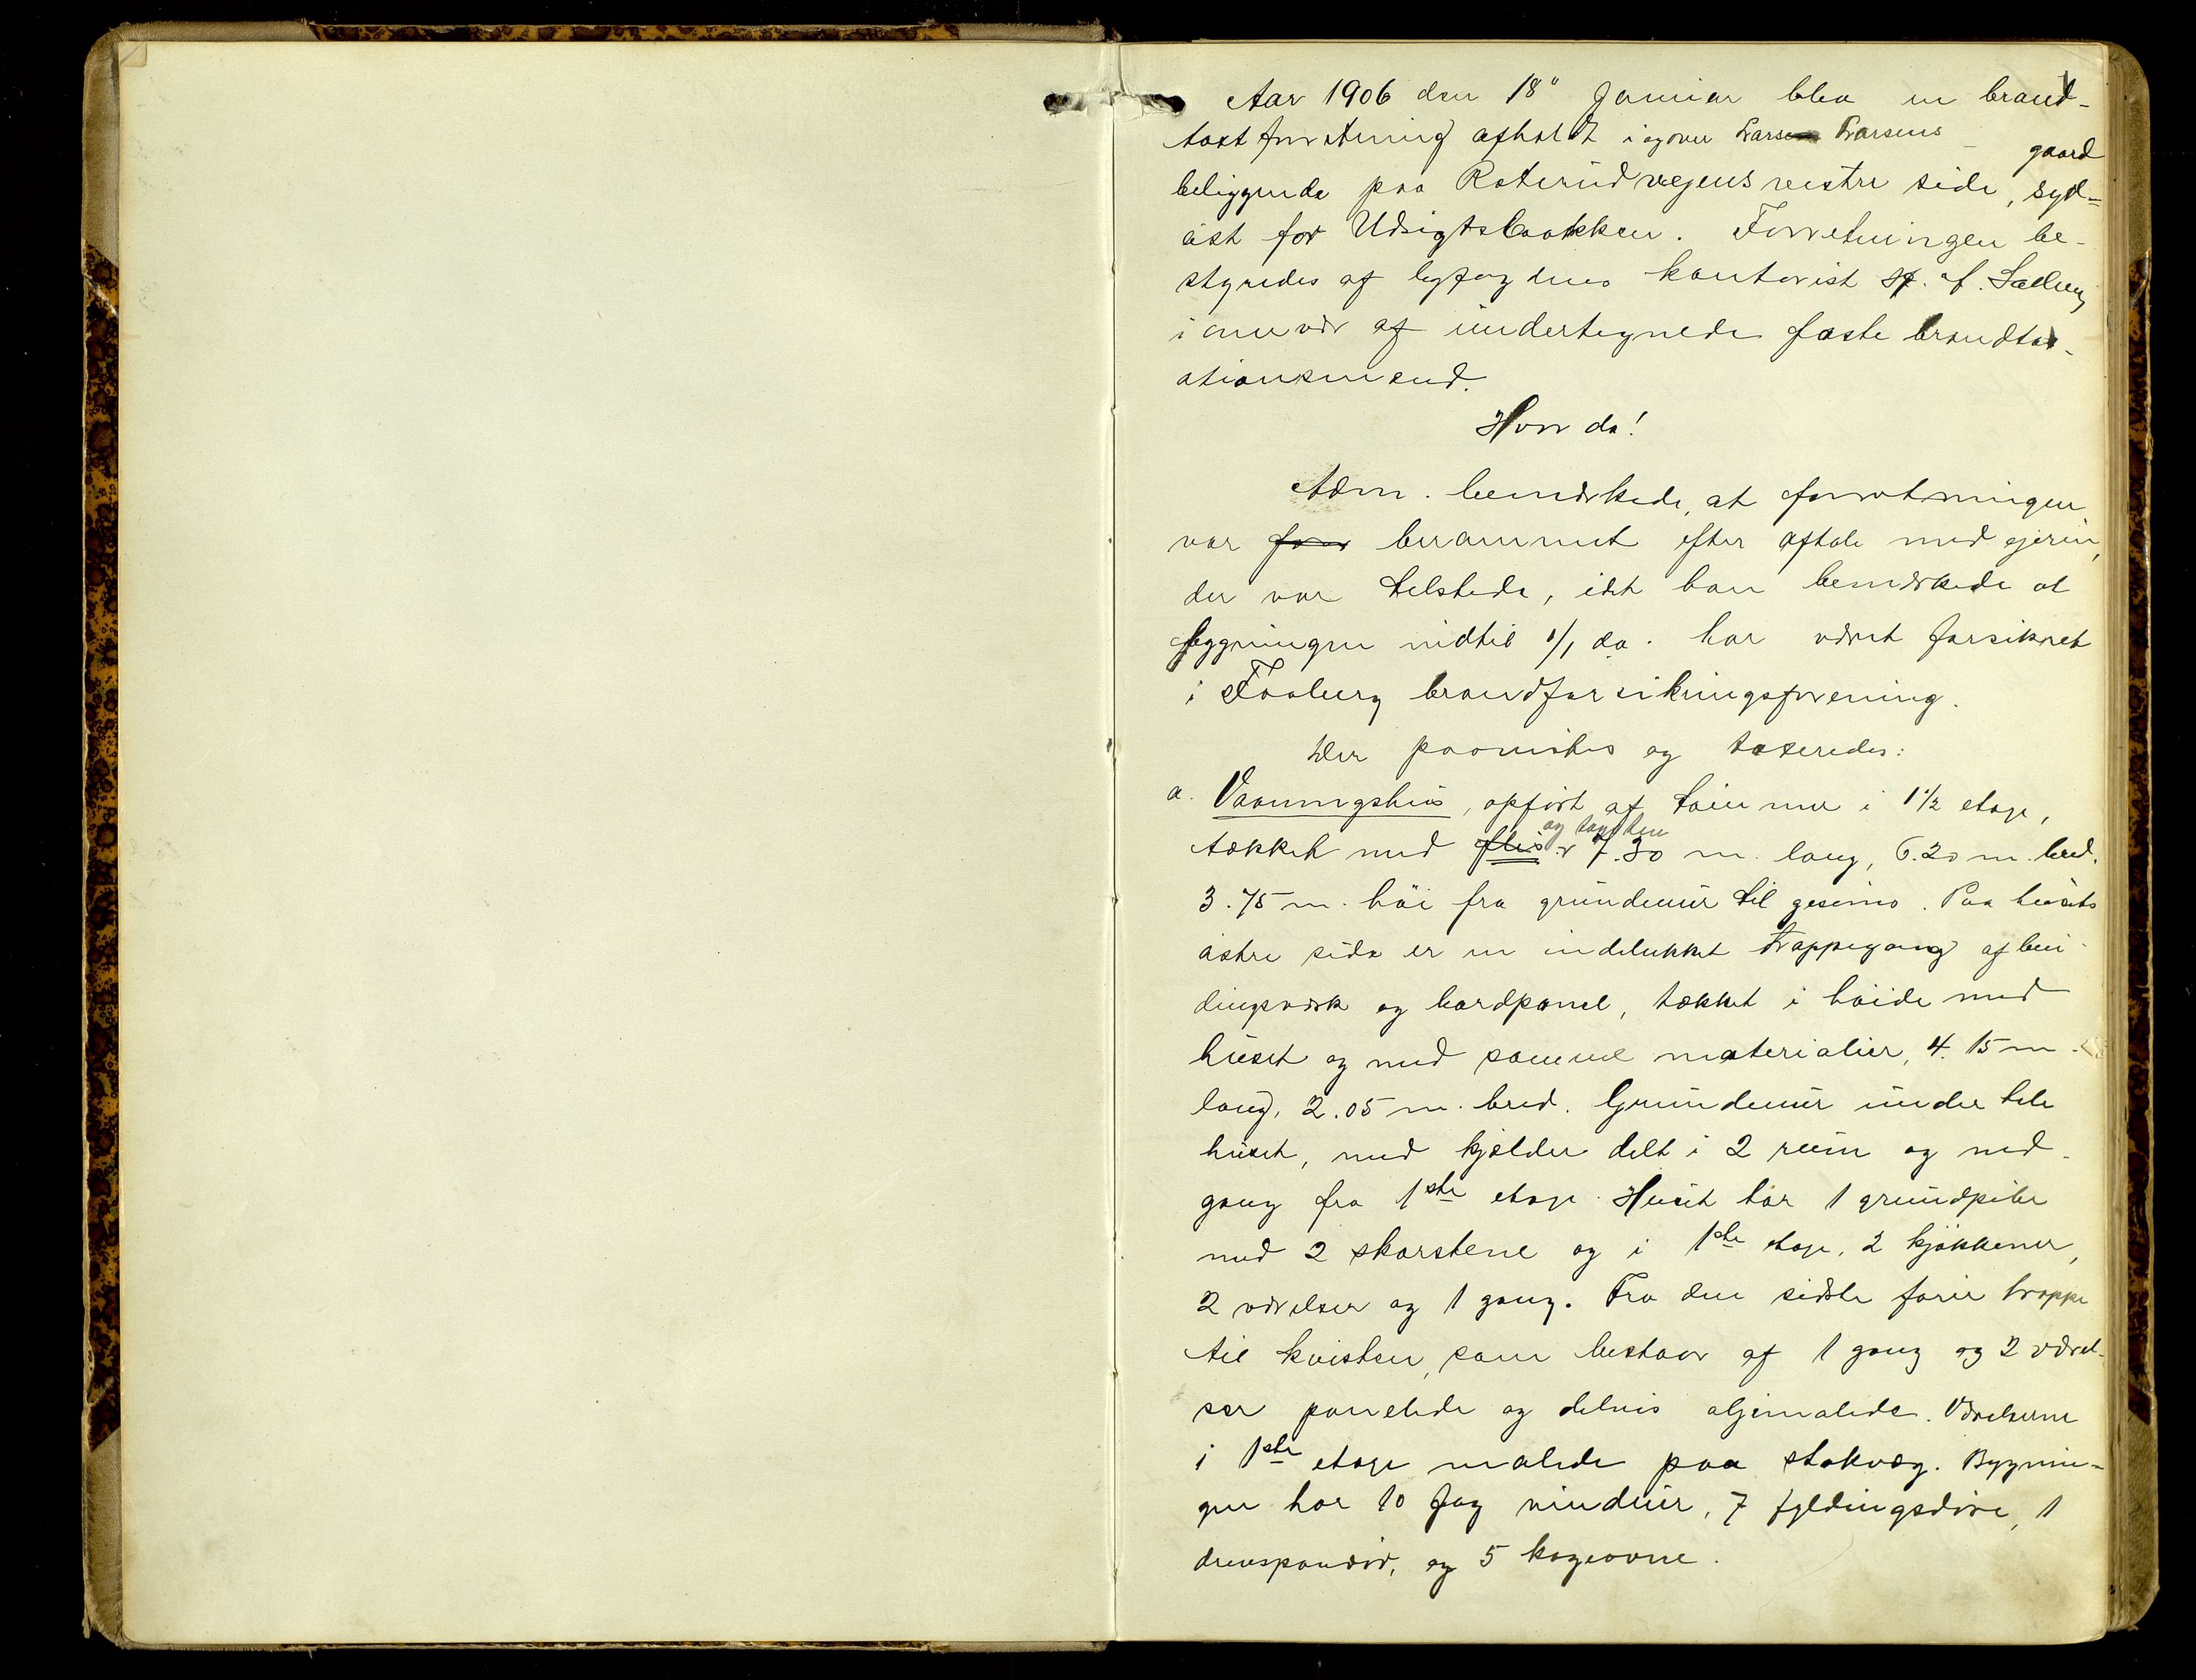 1
Aar 1906 den 18" Januar blev en brand-
takstforretning afholdt i og over Lars Larsens gaard
beliggende paa Roterudvejens vestre side, syd-
øst for Udsigtsbakken. Forretningen be-
styredes af byfogdens kontorist
i overvær af undertegnede faste brandtax-
ationsmænd.
Hvor da!
Adm. bemærkede, at forretningen
var berammet efter aftale med ejeren,
der var tilstede, idet han bemærkede at
bygningen indtil 1/1 da. har været forsikret
i Faaberg brandforsikringsforening.
Der paavistes og taxeredes:
a. Vaaningshus, opført af tømmer i 1 1/2 etage,
tækket med flis og tagsten 7.30 m. lang, 6.20 m. bred.
3.75 m. høi fra grundmur til gesims. Paa husets
østre side er en indelukket trappegang af bin-
dingsværk og bordpanel, tækket i høide med
huset og med samme materialier, 4.15 m.
lang, 2.05 m. bred. Grundmur under hele
huset, med kjælder delt i 2 rum og ned-
gang fra 1ste etage. Huset har 1 grundpibe
med 2 skorstene og i 1ste etage, 2 kjøkkener,
2 værelser og 1 gang. Fra den sidste fører trappe
til kvisten, som bestaar af 1 gang og 2 værel-
ser panelede og delvis oljemalede. Værelserne
i 1ste etage malede paa stokvæg. Bygnin-
gen har 10 fag vinduer, 7 fyldingsdøre, 1
drevspandør, og 5 kogeovne.